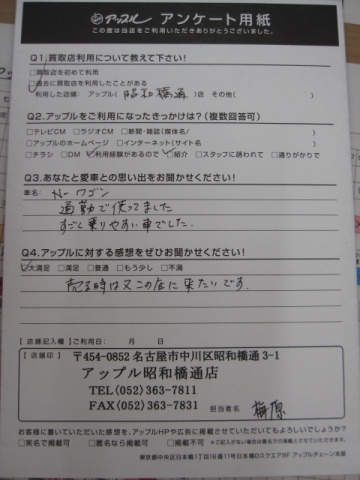 アップル アンケート用紙
この度は当店をご利用いただきありがとうございました。
Q1.買取店利用について教えて下さい!
□買取店を初めて利用
□過去に買取店を利用したことがある
利用した店舗: アップル( 昭和橋通 )店 その他( )
Q2.アップルをご利用になったきっかけは?(複数回答可)
□テレビCM □ラジオCM □新聞・雑誌(媒体名/ )
□アップルのホームページ □インターネット(サイト名 )
□チラシ □DM □利用経験があるので □紹介 □スタッフに誘われて □通りがかりで
Q3.あなたと愛車との思い出をお聞かせください!
車名: N-ワゴン
通勤で使ってました
すごく乗りやすい車でした.
Q4.アップルに対する感想をぜひお聞かせください!
□大満足 □満足 □普通 □もう少し □不満
売る時は又この店に来たいです.
【店舗記入欄】ご利用日: 月 日
【店舗印】
〒454-0852 名古屋市中川区昭和橋通 3-1
アップル昭和橋通店
TEL(052)363-7811
FAX(052)363-7831
担当者名 梅原
お客様に書いていただいた感想を、アップルHPや広告に掲載させていただいてもよろしいでしょうか?
□実名で掲載可 □匿名なら掲載可 □掲載不可 ※ご記入がない場合は匿名での掲載をさせていただきます。
東京都中央区日本橋1丁目16番11号日本橋Dスクエア9F アップルチェーン本部